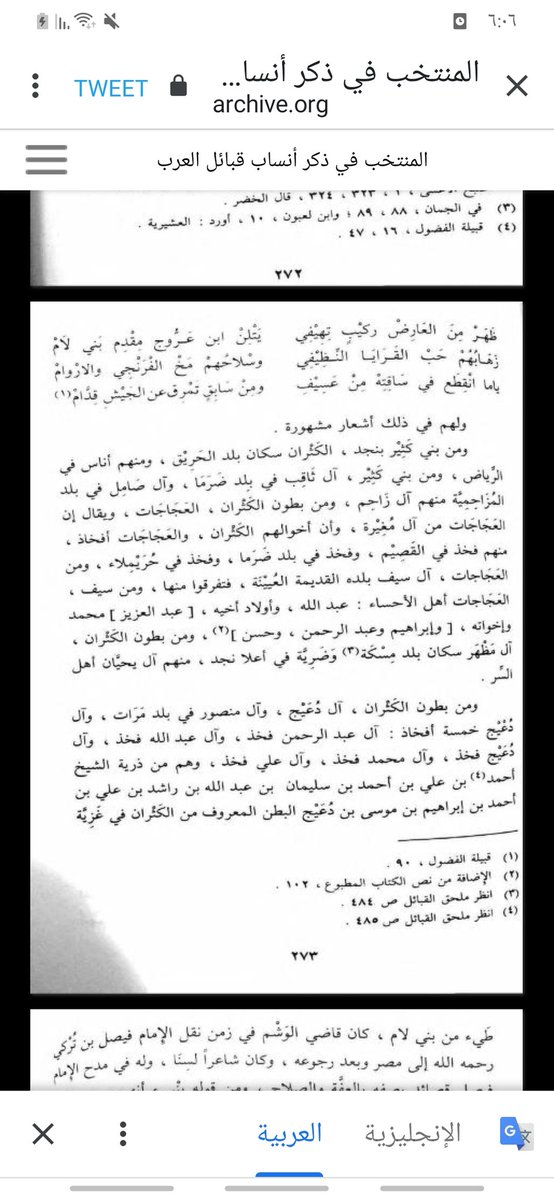 ٦:٠٦
المنتخب في ذكر أنسا...
archive.org
TWEET
المنتخب في ذكر أنساب قبائل العرب
٣٢٣ ، ٣٢٤ ، قال الخضر .
(٣) في الجمان ، ٨٨ ، ٨٩ ؛ وابن لعبون ، ١٠ ، أورد : العشيرية .
(٤) قبيلة الفضول ، ١٦ ، ٤٧ .
٢٧٢
ظَهَرْ مِنَ العَارِضْ ركَيْبٍ تِهيْفِي يَتْلنْ ابن عَرُّوجٍ مِقْدِم بَني لَامْ
زَهَابُهُمْ حَبْ القَرَايَا النِّظِيْفِي وسْلاحُهمْ مَخْ الفْرَنْجي والارْوامْ
ياما انْقطَع في سَاقِتِهْ مِنْ عَسِيْفِ ومِنْ سَابقٍ تَمْرق عن الجَيْشِ قِدَّامْ(١)
ولهم في ذلك أشعار مشهورة .
ومن بني كَثِيْر بنجد ، الكَثْران سكان بلد الحَرِيْق ، ومنهم أناس في
الرِّياض ، ومن بني كَثِيْر ، آل ثَاقِب في بلد ضَرَمَا ، وآل صَامِل في بلد
المُزَاحِمِيَّة منهم آل زَاحِم ، ومن بطون الكَثْران ، العَجَاجَات ، ويقال إن
العَجَاجَات من آل مُغِيْرة ، وأن أخوالهم الكَثْران ، والعَجَاجَات أفخاذ ،
منهم فخذ في القَصِيْم ، وفخذ في بلد ضَرَما ، وفخذ في حُرَيْمِلاء ، ومن
العَجَاجَات ، آل سيف بلده القديمة العُيَيْنَة ، فتفرقوا منها ، ومن سيف ،
العَجَاجَات أهل الأحساء : عبد الله ، وأولاد أخيه ، [ عبد العزيز ] محمد
وإخوانه ، [ وإبراهيم وعبد الرحمن ، وحسن ](٢) ، ومن بطون الكَثْران ،
آل مَظْهَر سكان بلد مِسْكَة(٣) وَضَرِيَّة في أعلا نجد ، منهم آل يحيَّان أهل
السِّر .
ومن بطون الكَثْران ، آل دُعَيْج ، وآل منصور في بلد مَرَات ، وآل
دُعَيْج خمسة أفخاذ : آل عبد الرحمن فخذ ، وآل عبد الله فخذ ، وآل
دُعَيْج فخذ ، وآل محمد فخذ ، وآل علي فخذ ، وهم من ذرية الشيخ
أحمد(٤) بن علي بن أحمد بن سليمان بن عبد الله بن راشد بن علي بن
أحمد بن إبراهيم بن موسى بن دُعَيْج البطن المعروف من الكَثْران في غَزِيَّة
(١) قبيلة الفضول ، ٩٠ .
(٢) الإضافة من نص الكتاب المطبوع ، ١٠٢ .
(٣) انظر ملحق القبائل ص ٤٨٤ .
(٤) انظر ملحق القبائل ص ٤٨٥ .
٢٧٣
طَيء من بني لام ، كان قاضي الوَشْم في زمن نقل الإمام فيصل بن تُرْكي
رحمه الله إلى مصر وبعد رجوعه ، وكان شاعراً لسِنَا ، وله في مدح الإمام
الإنجليزية
العربية